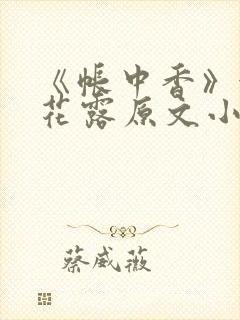 《帐中香》
花露原文小
蔡威薇